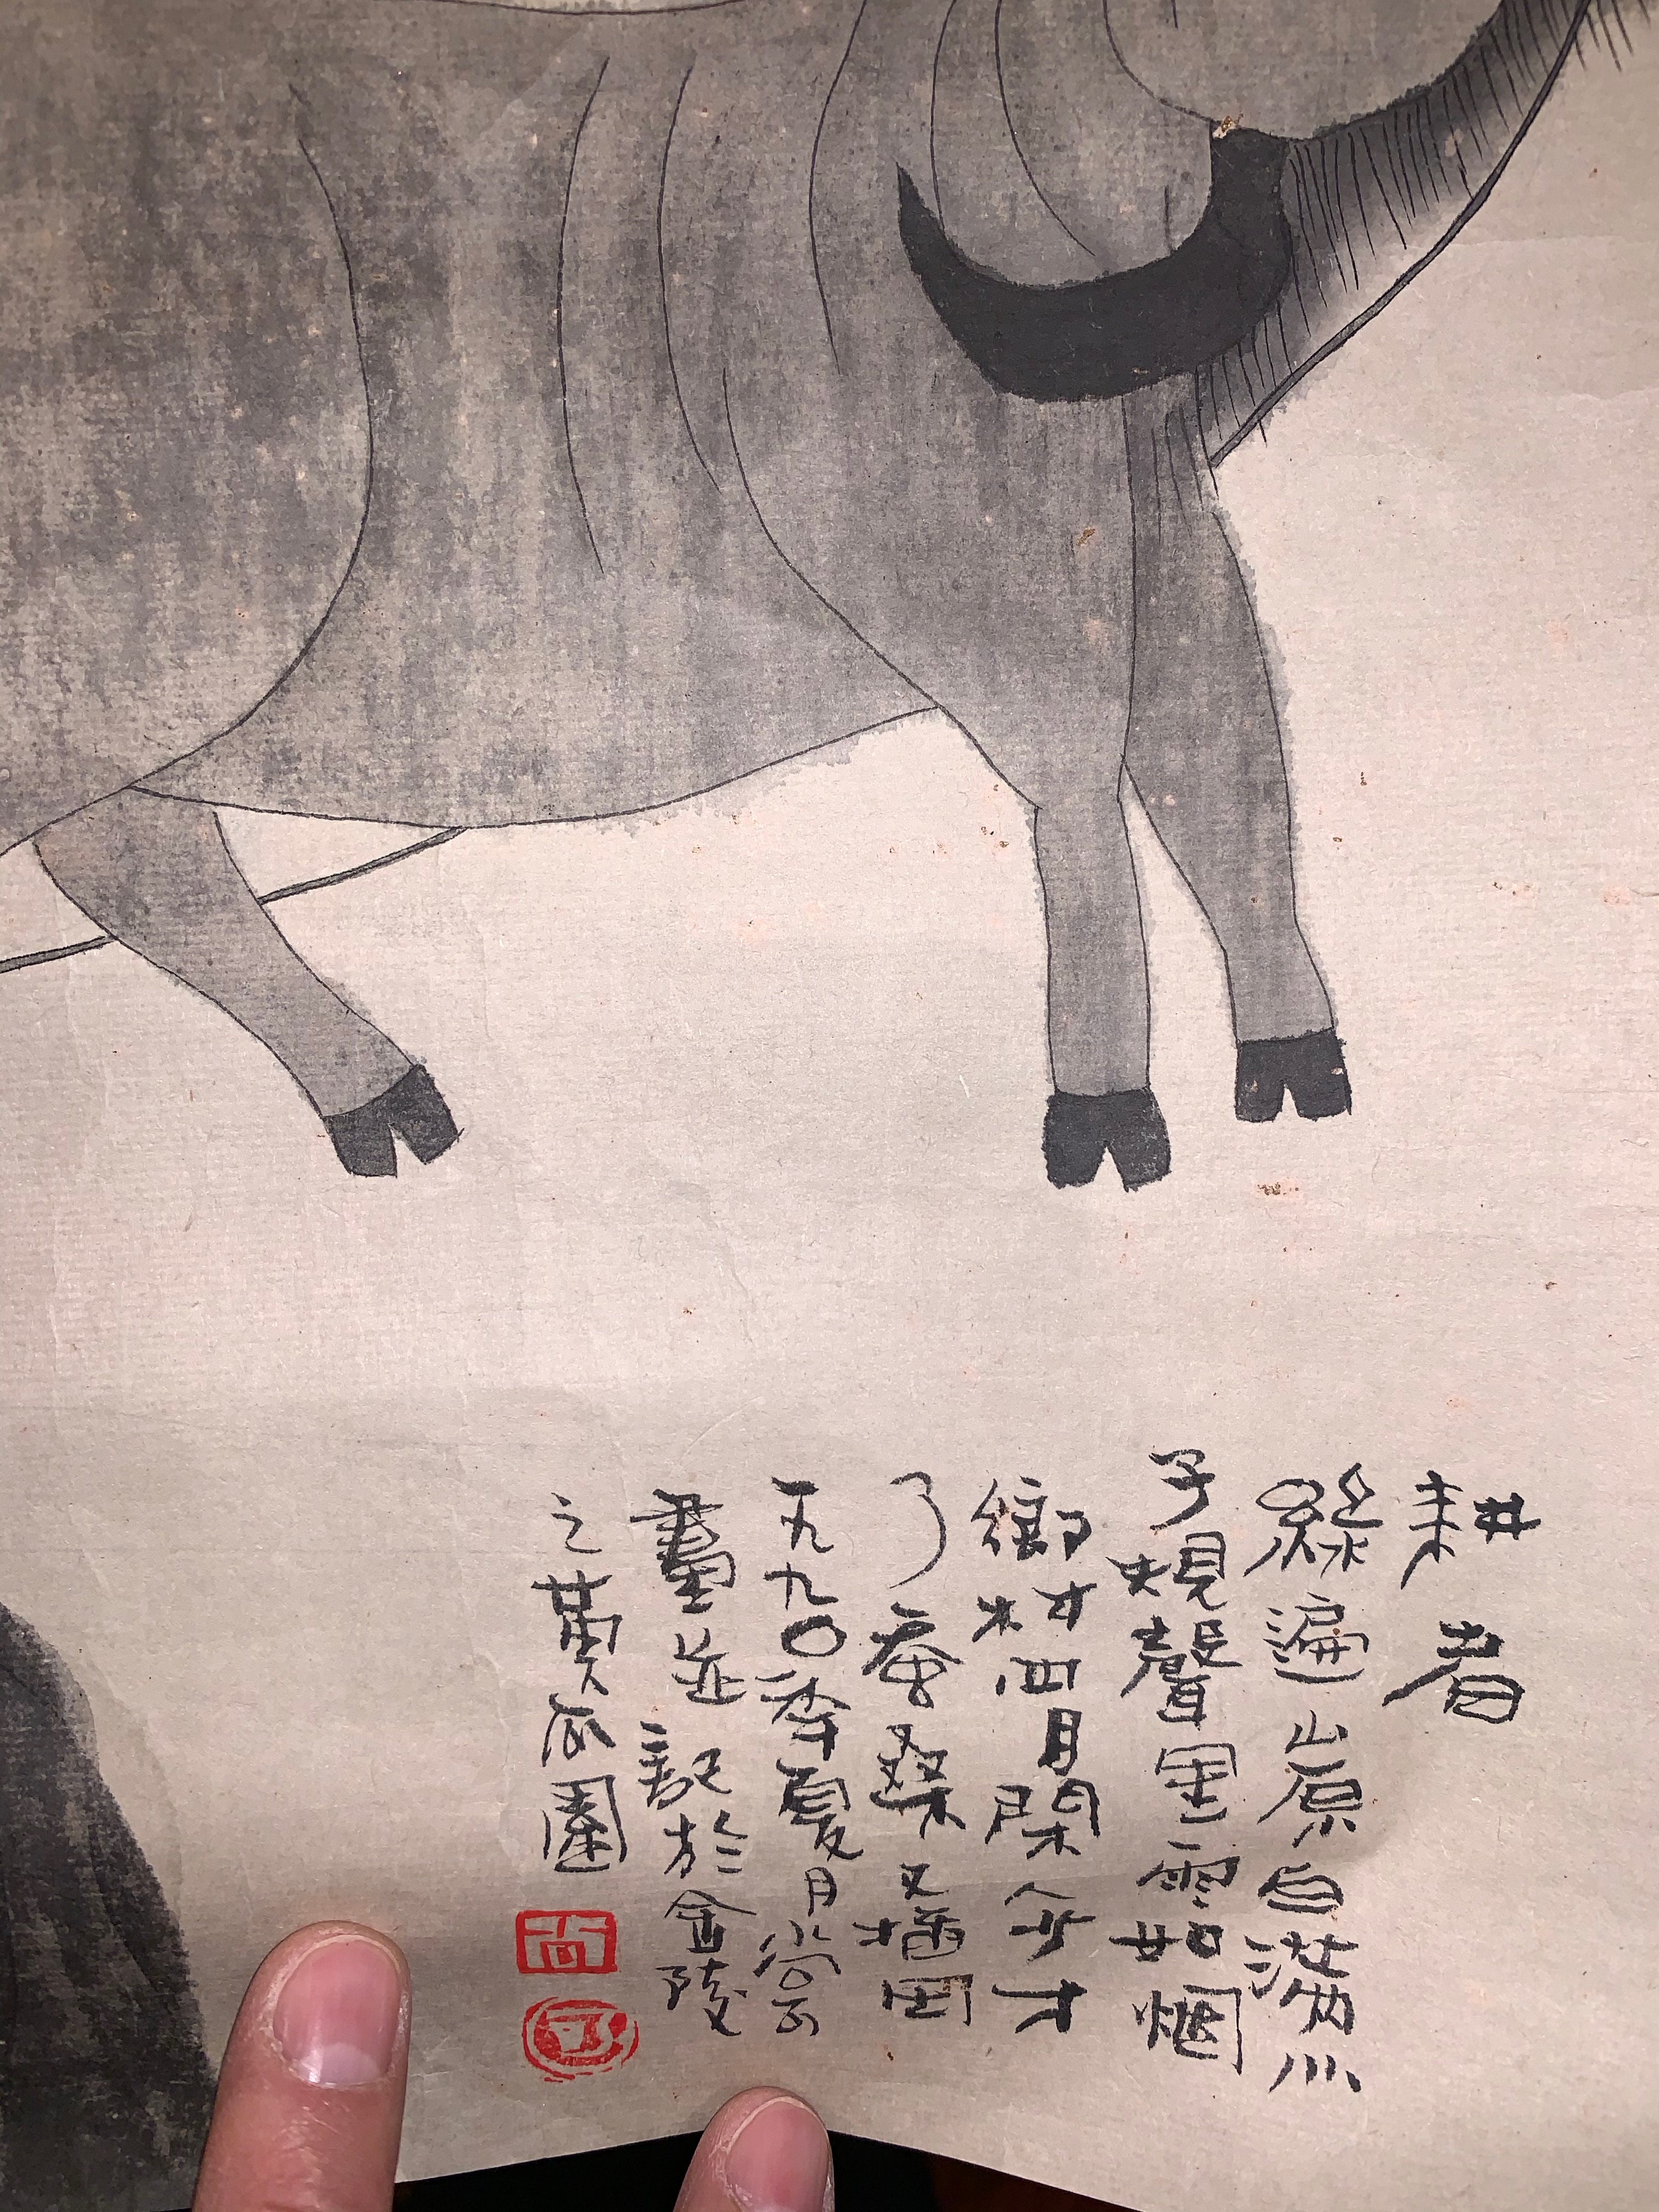 耕者
綠遍山原白滿川
子規聲里雨如烟
鄉村四月閑人少才
了蚕桑又插田
一九九〇季夏月尚云
畫並記於金陵
之黃瓜園